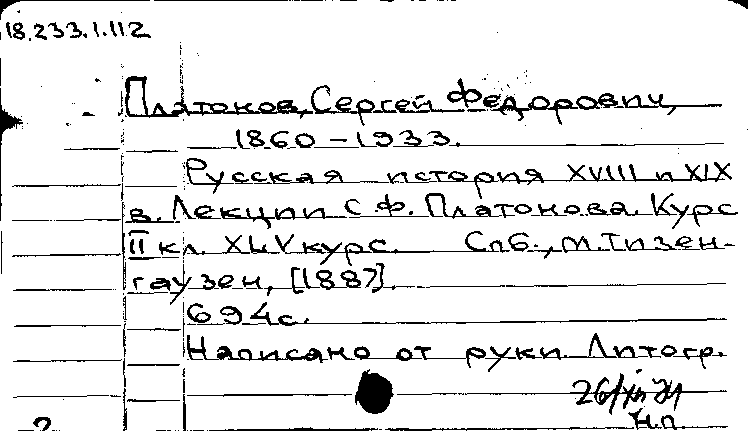 18.233.1.112
Платонов, Сергей Федорович,
1860-1933.
Русская история XVIII и XIX
в. Лекции С Ф. Платонова. Курс
II кл. XLV курс. Спб., М. Тизен-
гаузен, [1887].
694с.
Написано от руки. Литогр.
Н.п.
2